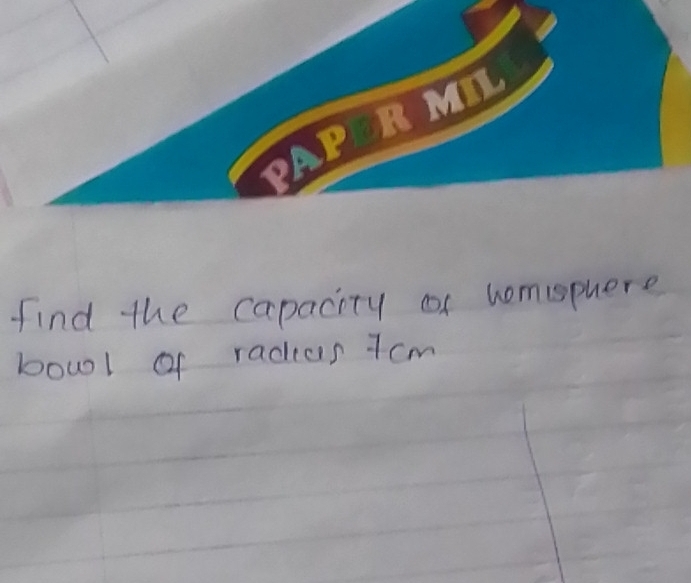 PAPER MILL
find the capacity of hemisphere
bowl of radius 7cm